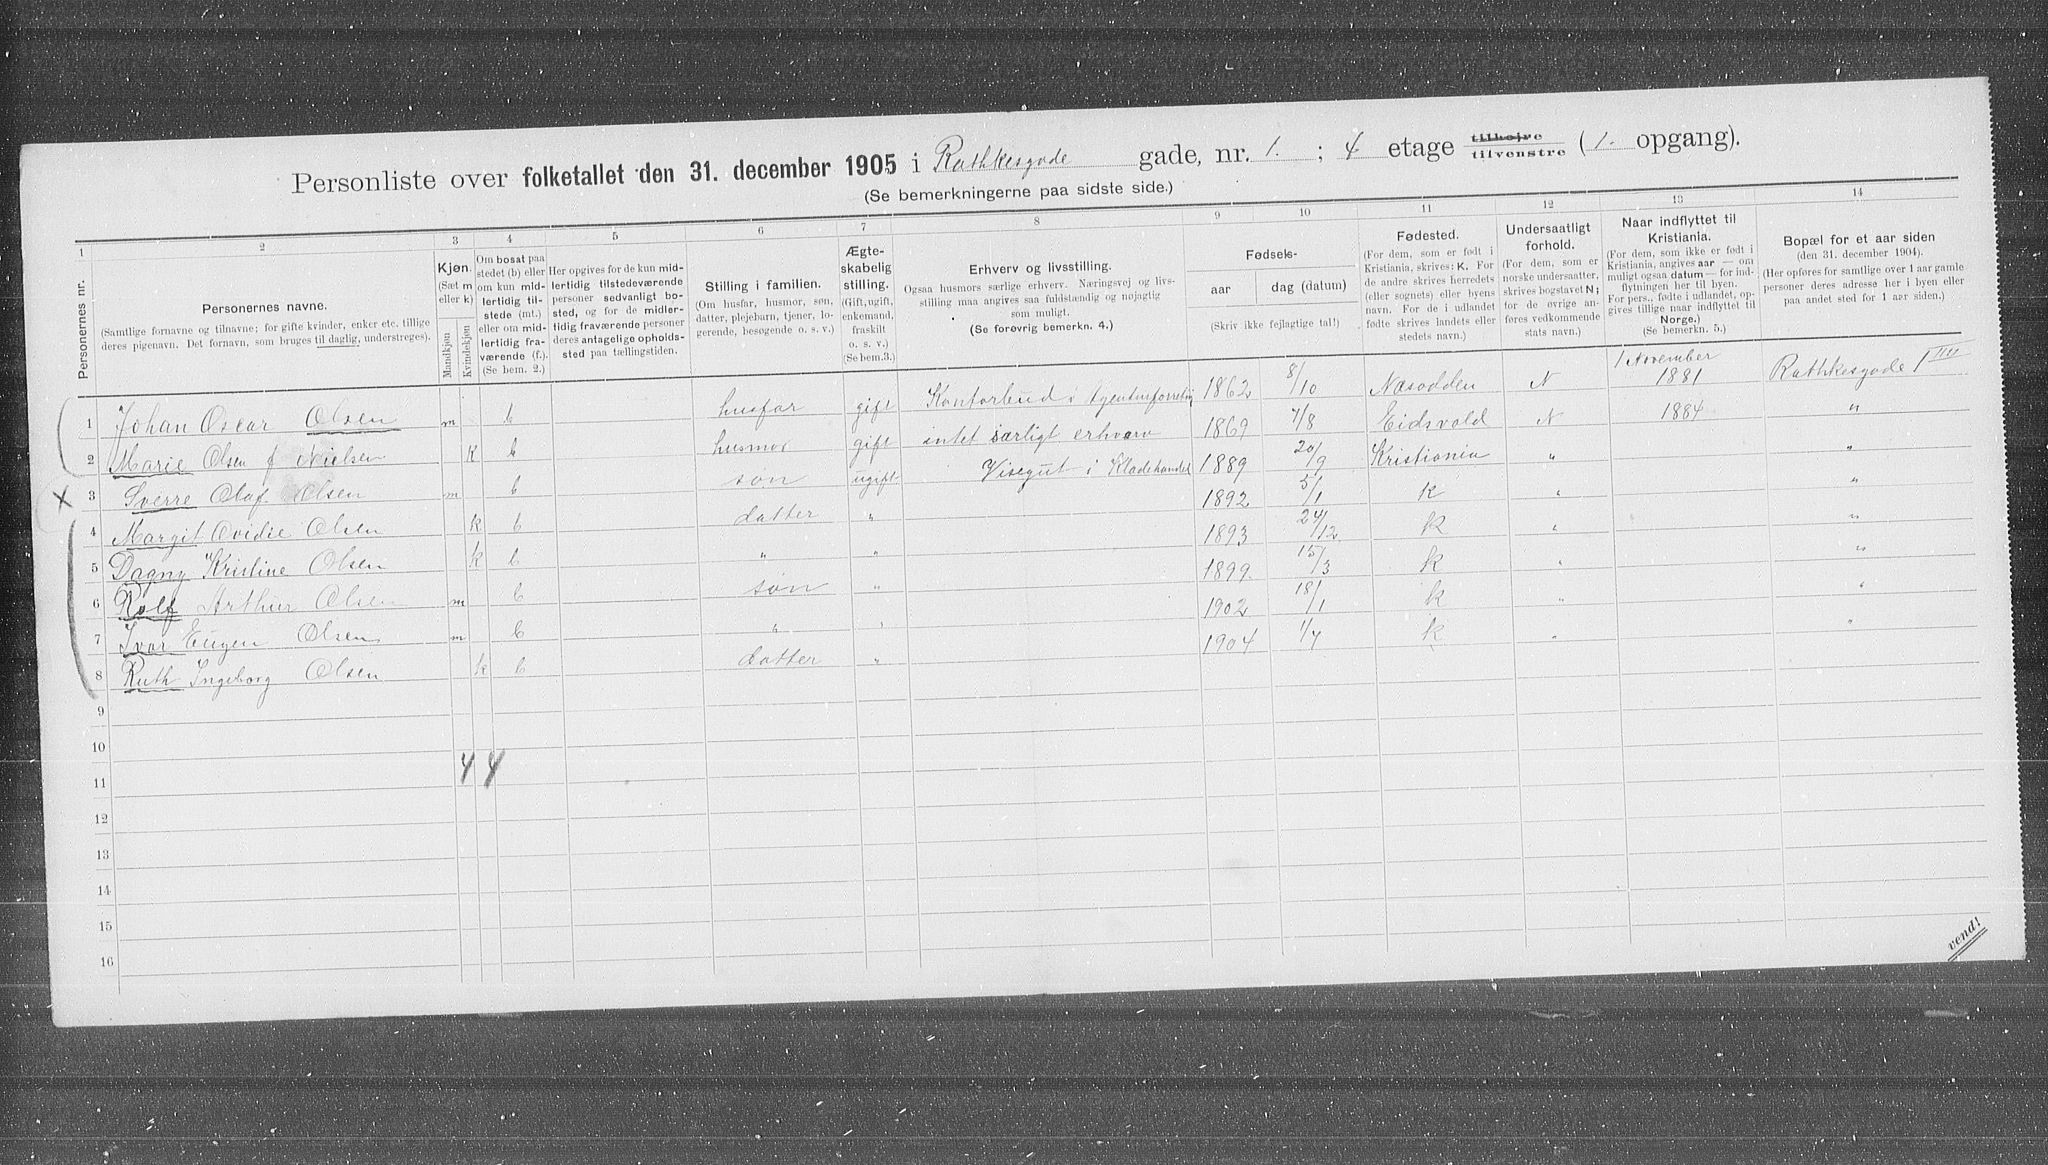 Personliste over folketallet den 31. december 1905 i Rathkesgade gade, nr. 1. ; 4 etage tilhøjre tilvenstre (1. opgang).
(Se bemerkningerne paa sidste side.)
1 2 3 4 5 6 7 8 9 10 11 12 13 14
Personernes nr.
Personernes navne.
(Samtlige fornavne og tilnavne; for gifte kvinder, enker etc. tillige deres pigenavn. Det fornavn, som bruges til daglig, understreges).
Kjøn. (Sæt m eller k)
Mandkjøn
Kvindekjøn
Om bosat paa stedet (b) eller om kun midlertidig tilstede (mt.) eller om midlertidig fraværende (f.). (Se bem. 2.)
Her opgives for de kun midlertidig tilstedeværende personer sedvanligt bosted, og for de midlertidig fraværende personer deres antagelige opholdssted paa tællingstiden.
Stilling i familien.
(Om husfar, husmor, søn, datter, plejebarn, tjener, logerende, besøgende o. s. v.)
Ægteskabelig stilling.
(Gift, ugift, enkemand, fraskilt o. s. v.) (Se bem. 3.)
Erhverv og livsstilling.
Ogsaa husmors særlige erhverv. Næringsvej og livsstilling maa angives saa fuldstændig og nøjagtig som muligt.
(Se forøvrig bemerkn. 4.)
Fødsels-
aar
dag (datum)
(Skriv ikke fejlagtige tal!)
Fødested.
(For dem, som er født i Kristiania, skrives: K. For de andre skrives herredets (eller sognets) eller byens navn. For de i udlandet fødte skrives landets eller stedets navn.)
Undersaatligt forhold.
(For dem, som er norske undersaatter, skrives bogstavet N; for de øvrige anføres vedkommende stats navn.)
Naar indflyttet til Kristiania.
(For dem, som ikke er født i Kristiania, angives aar — om muligt ogsaa datum — for indflytningen her til byen. For pers., fødte i udlandet, opgives tillige naar indflyttet til Norge.)
(Se bemerkn. 5.)
Bopæl for et aar siden
(den 31. december 1904).
(Her opføres for samtlige over 1 aar gamle personer deres adresse her i byen eller paa andet sted for 1 aar siden.)
1 Johan Oscar Olsen m b husfar gift Kontorbud i Agenturforretin 1862 8/10 Næsodden N 1 November 1881 Rathkesgade 1 IIII
2 Marie Olsen f Nielsen k b husmor gift intet særligt erhverv 1869 7/8 Eidsvold N 1884 "
X 3 Sverre Olaf Olsen m b søn ugift Visegut i Kladehandel 1889 20/9 Kristiania " "
4 Margit Ovidie Olsen k b datter " 1892 5/1 K " "
5 Dagny Kristine Olsen k b " " 1893 24/12 K " "
6 Rolf Arthur Olsen m b søn " 1899 15/3 K " "
7 Ivar Eugen Olsen m b " " 1902 18/1 K " "
8 Ruth Ingeborg Olsen k b datter " 1904 1/7 K " "
9
10
4 4
11
12
13
14
15
16
vend!